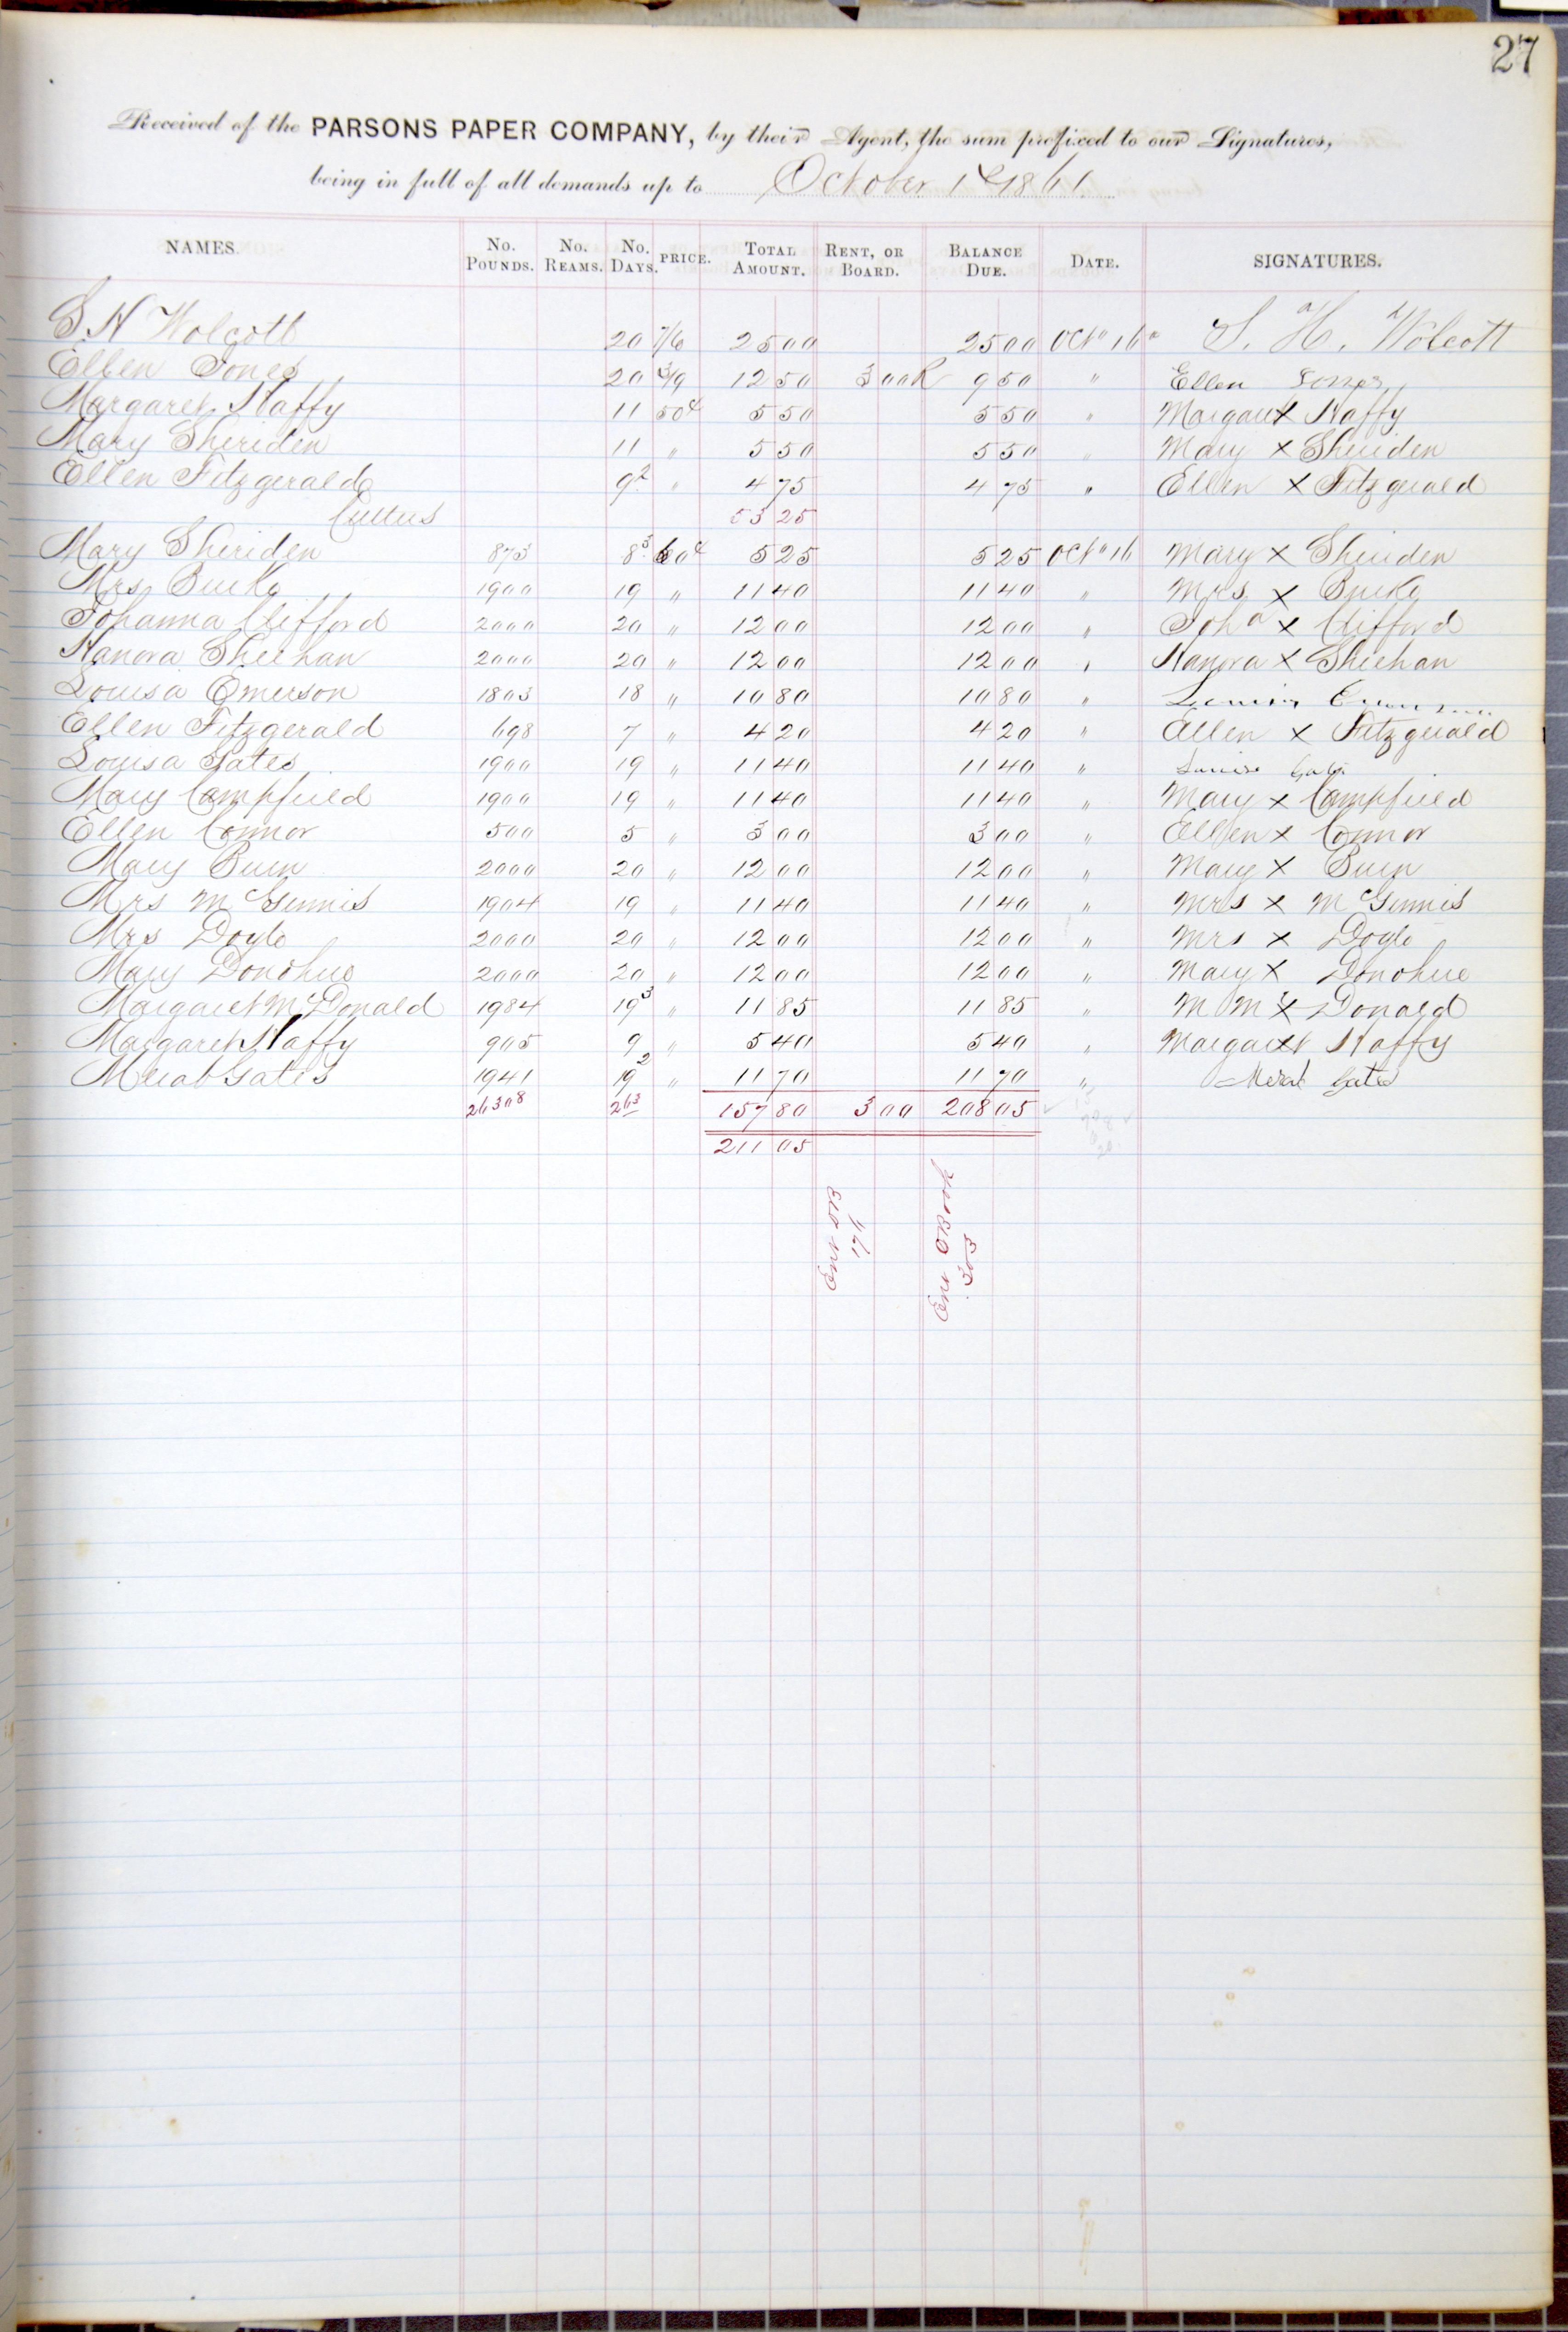 27
Received of the PARSONS PAPER COMPANY, by their Agent, the sum prefixed to our Signatures,
being in full of all demands up to October 1st 1861
NAMES. No. POUNDS. No. REAMS. No. DAYS. PRICE. TOTAL AMOUNT. RENT, OR BOARD. BALANCE DUE. DATE. SIGNATURES.
S H Wolcott 20 7/6 25 00 25 00 Oct 16 S. H. Wolcott
Ellen Jones 20 3/9 12 50 3 00 R 9 50 " Ellen Jones
Margaret Haffy 11 50c 5 50 5 50 " Margaret X Haffy
Mary Sheriden 11 " 5 50 5 50 " Mary X Sheriden
Ellen Fitzgerald 9 2 " 4 75 4 75 " Ellen X Fitzgerald
Cutters 53 25
Mary Sheriden 873 8 3 60c 5 25 5 25 Oct 16 Mary X Sheriden
Mrs Burke 1900 19 " 11 40 11 40 " Mrs X Burke
Johanna Clifford 2000 20 " 12 00 12 00 " Joha X Clifford
Hanora Sheehan 2000 20 " 12 00 12 00 " Hanora X Sheehan
Louisa Emerson 1803 18 " 10 80 10 80 " Louisa Emerson
Ellen Fitzgerald 698 7 " 4 20 4 20 " Ellen X Fitzgerald
Louisa Gates 1900 19 " 11 40 11 40 " Louisa Gates
Mary Campfield 1900 19 " 11 40 11 40 " Mary X Campfield
Ellen Connor 500 5 " 3 00 3 00 " Ellen X Connor
Mary Buen 2000 20 " 12 00 12 00 " Mary X Buen
Mrs McGinnis 1904 19 " 11 40 11 40 " Mrs X McGinnis
Mrs Doyle 2000 20 " 12 00 12 00 " Mrs X Doyle
Mary Donohue 2000 20 " 12 00 12 00 " Mary X Donohue
Margaret McDonald 1984 19 3 " 11 85 11 85 " M Mc X Donald
Margaret Haffy 905 9 " 5 40 5 40 " Margaret X Haffy
Merab Gates 1941 19 2 " 11 70 11 70 " Merab Gates
26308 263 157 80 3 00 208 05
211 05
Ent DB 176
Ent CBook 303